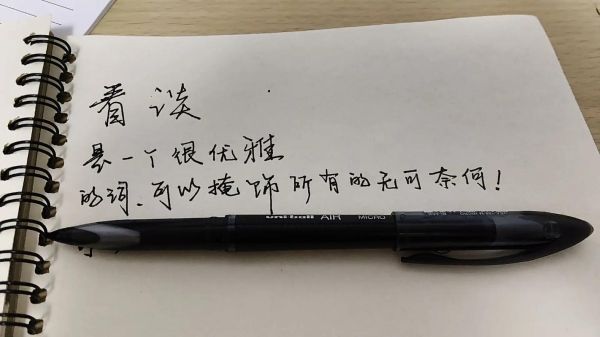 看谈
是一个很优雅
的词、可以掩饰所有的无可奈何!
uni-ball AIR MICRO